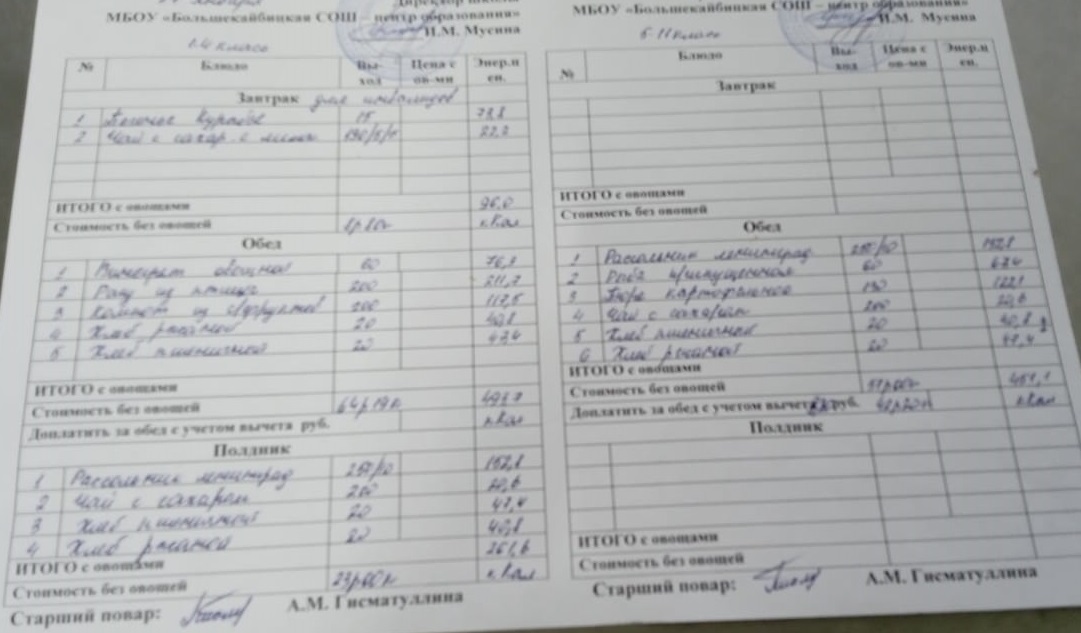 МБОУ «Большекайбицкая СОШ – центр образования»
И.М. Мусина
1-4 класс
№ Блюдо Вы-ход Цена с ов-ми Энер.ц ен.
Завтрак для инвалидов
1 Печенье Курабье 15 73,8
2 Чай с сахар. с 22,2
ИТОГО с овощами 96,0
Стоимость без овощей 8р20к кКал
Обед
1 Винегрет овощной 60 76,1
2 Рагу из птицы 200 211,7
3 Компот из с/фруктов 200
4 Хлеб ржаной 20 40,8
5 Хлеб пшеничной 20 47,4
ИТОГО с овощами
Стоимость без овощей 64р19к 493,7
Доплатить за обед с учетом вычета руб. кКал
Полдник
1 Рассольник ленинград 250/10 152,8
2 Чай с сахаром 200 20,6
3 Хлеб пшеничной 20 47,4
4 Хлеб ржаной 20 40,8
ИТОГО с овощами 261,6
Стоимость без овощей 23р00к кКал
Старший повар: А.М. Гисматуллина
МБОУ «Большекайбицкая СОШ – центр образования»
И.М. Мусина
5-11 класс
№ Блюдо Вы-ход Цена с ов-ми Энер.ц ен.
Завтрак
ИТОГО с овощами
Стоимость без овощей
Обед
1 Рассольник ленинград 250/10 152,8
2 Рыба припущенная 60 67,4
3 Пюре картофельное 150 122,1
4 Чай с сахаром 200 20,6
5 Хлеб пшеничной 20 40,8
6 Хлеб ржаной 20 47,4
ИТОГО с овощами
Стоимость без овощей 451,1
Доплатить за обед с учетом вычета руб. кКал
Полдник
ИТОГО с овощами
Стоимость без овощей
Старший повар: А.М. Гисматуллина